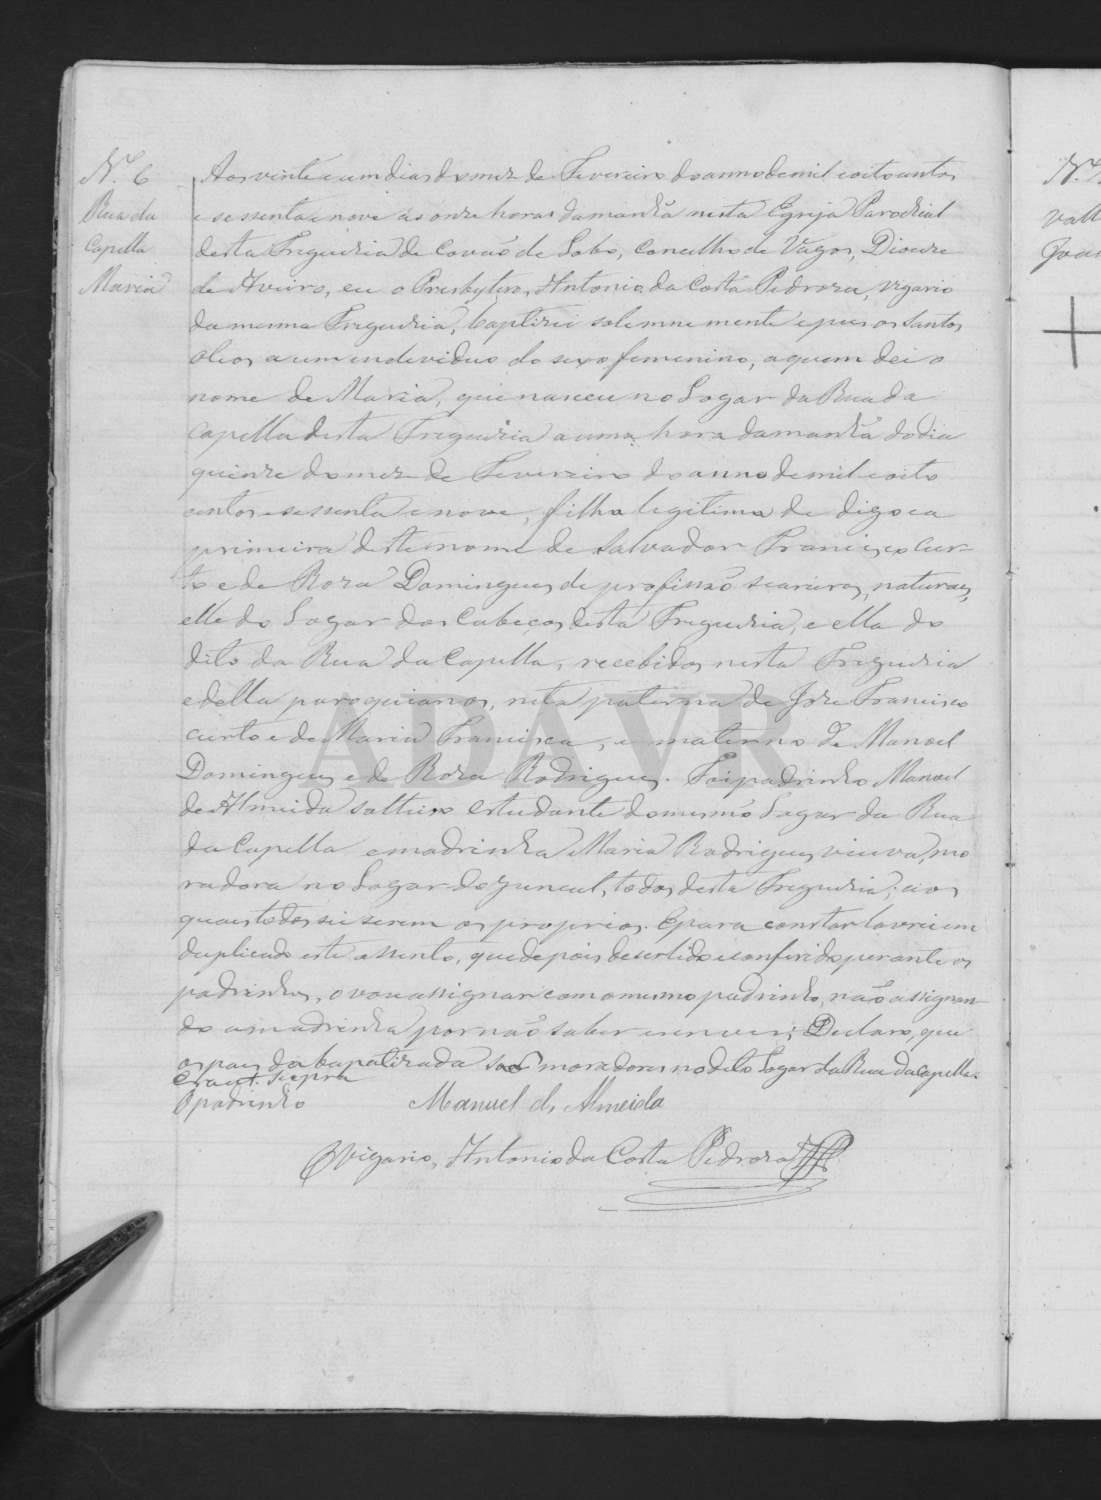 N.º 6
Rua da
Capella
Maria
Aos vinte e um dias do mez de Fevereiro do anno de mil e oito centos
e sessenta e nove ás onze horas da manhã nesta Egreja Parochial
desta Freguezia de Covaõ de Lobo, concelho de Vagos, Diocese
de Aveiro, eu o Presbytero, Antonio da Costa Pedroza, vigario
da mesma Freguezia, baptizei solemnemente e pus os Santos
Oleos a um individuo do sexo femenino, a quem dei o
nome de Maria, que nasceu no Logar da Rua da
Capella desta Freguezia a uma hora da manhã do dia
quinze do mez de Fevereiro do anno de mil e oito
centos e sessenta e nove, filha legitima de digo e a
primeira deste nome de Salvador Francisco Cur-
to e de Roza Domingues de profissaõ seareiros, naturaes,
elle do Logar dos Cabeços desta Freguezia, e ella do
dito da Rua da Capella, recebidos nesta Freguezia
e della paroquianos, neta paterna de Joze Francisco
curto e de Maria Francisca, e materna de Manoel
Domingues e de Roza Rodrigues. Foi padrinho Manoel
de Almeida solteiro estudante do mesmo Logar da Rua
da Capella e madrinha Maria Rodrigues viuva, mo
radora no Logar do Juncal, todos desta Freguezia; aos
quaes todos sei serem os proprios. E para constar lavrei em
duplicado este assento, que depois de ser lido e conferido perante os
padrinhos, o vou assignar com o mesmo padrinho, naõ assignan
do a madrinha por naõ saber escrever; Declaro, que
os paes da bapatizada saõ moradores no dito Logar da Rua da Capella.
Era ut supra
O padrinho Manuel de Almeida
O vigario, Antonio da Costa Pedroza
ADAVR
N.º
Vall
Joa